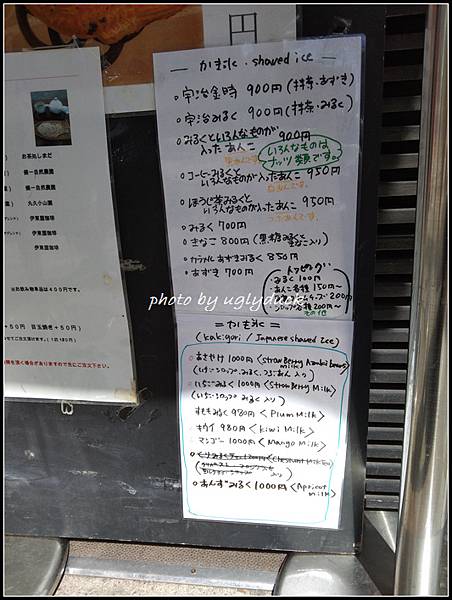 お茶処しまだ
備一自然農園
備一自然農園
丸久小山園
伊東屋珈琲
伊東屋珈琲
伊東屋珈琲
※お飲み物単品は４００円です。
＋５０円 目玉焼き＋５０円
かき氷・shaved ice
○宇治金時 900円(抹茶・あずき)
○宇治みるく 900円(抹茶・みるく)
○みるくといろんなものが
入ったあんこ 900円
いろんなものは
ナッツ類です。
○コーヒーみるくと
いろんなものが入ったあんこ 950円
○ほうじ茶みるくと
いろんなものが入ったあんこ 950円
○みるく 700円
○きなこ 800円(黒糖みるくと
きなこ入り)
○カラフルあずきみるく 850円
○あずき 700円
トッピング
・みるく 100円
・あんこ各種 150円〜
200円
・シロップ各種 200円〜
その他
photo by uglyduck
＝かき氷＝
(kakigori / Japanese shaved Ice)
○あさやけ 1000円<Strawberry Azuki beans
milk>
(いちごシロップ、みるく、つぶあん入り)
○いちごみるく 1000円<Strawberry Milk>
(いちごシロップ みるく入り)
すももみるく 980円<Plum Milk>
○キウイ 980円<kiwi Milk>
○マンゴー 1000円<Mango Milk>
○あんずみるく 1000円<Apricot
milk>